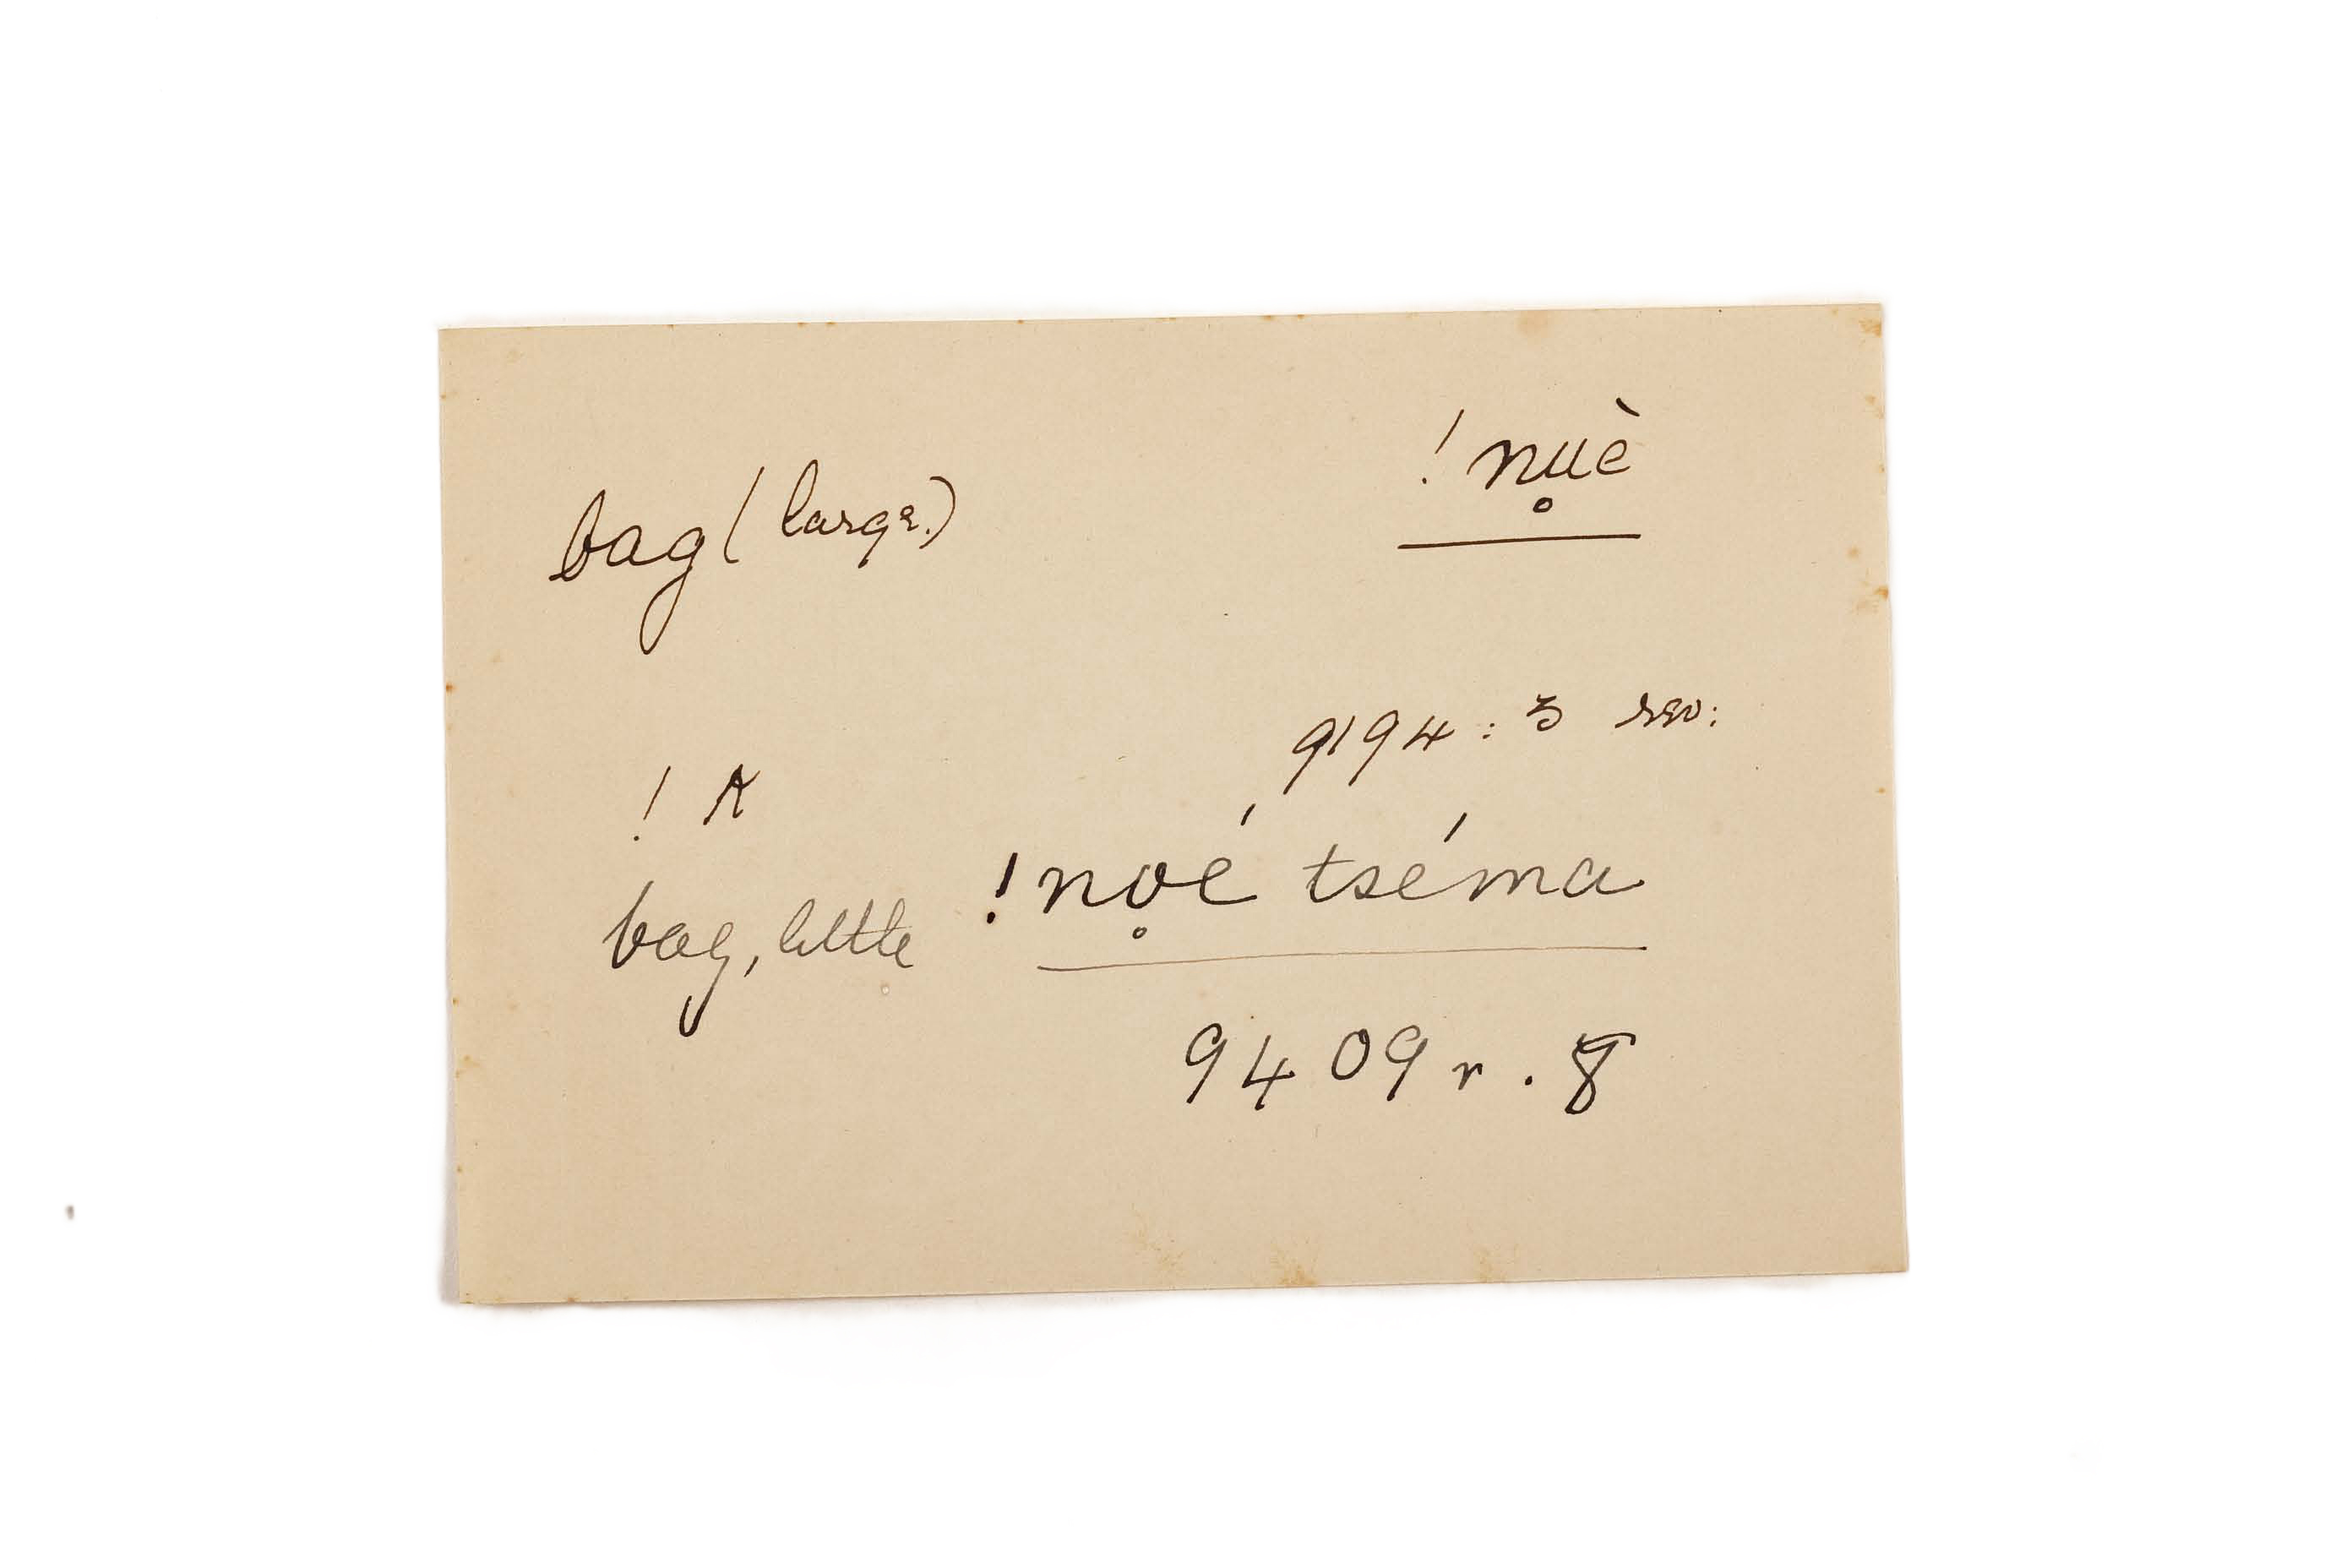 bag (large.) !nu̥è
9194 : 3 rev:
! ʌ
bag, little !no̥é tséma
9409 r. 8